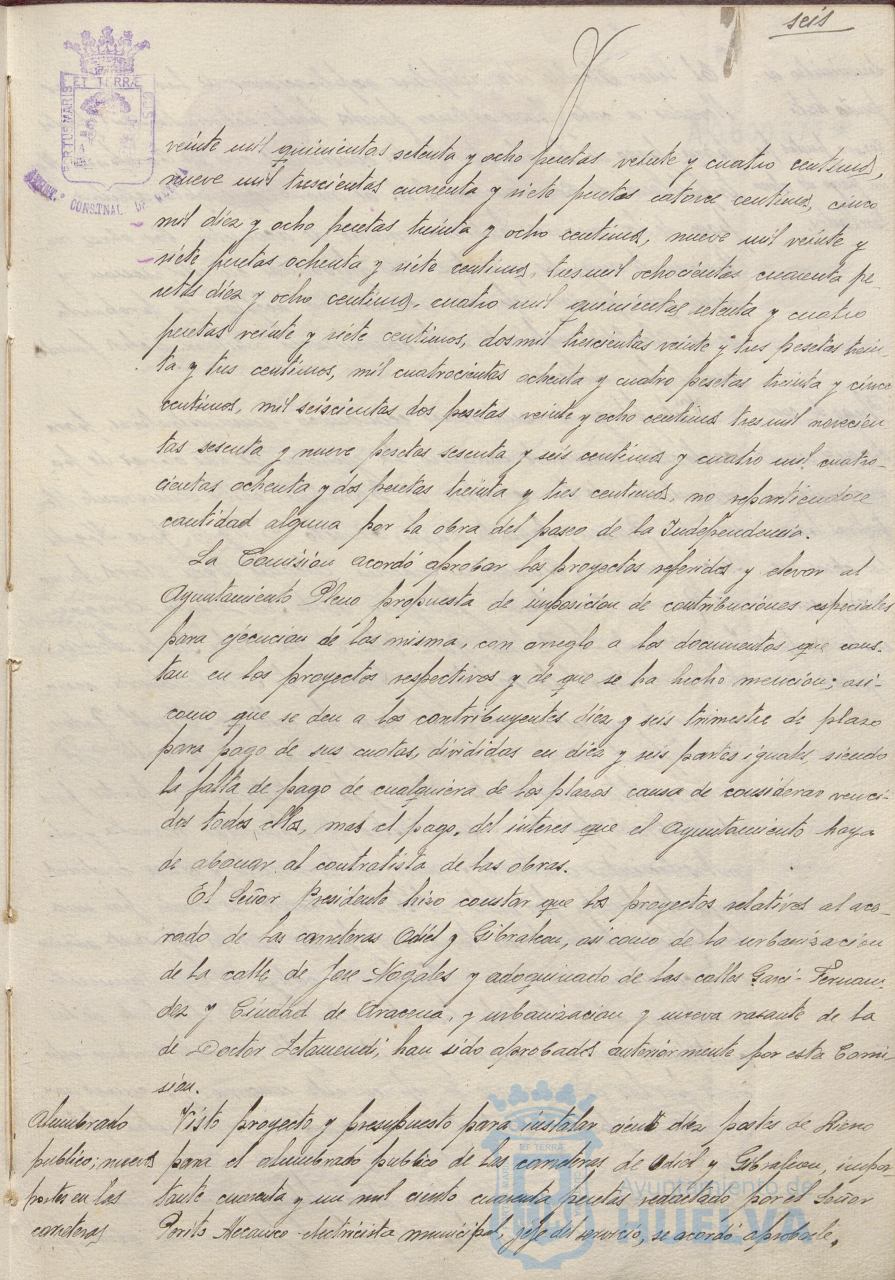 seis
PORTUS MARIS ET TERRÆ CUSTODIA
CONSTNAL DE HUELVA
veinte mil quinientas setenta y ocho pesetas veinte y cuatro centimos,
nueve mil trescientas cuarenta y siete pesetas catorce centimos, cinco
mil diez y ocho pesetas treinta y ocho centimos, nueve mil veinte y
siete pesetas ochenta y siete centimos, tres mil ochocientas cuarenta pe-
setas diez y ocho centimos, cuatro mil quinientas setenta y cuatro
pesetas veinte y siete centimos, dos mil trescientas veinte y tres pesetas trein-
ta y tres centimos, mil cuatrocientas ochenta y cuatro pesetas treinta y cinco
centimos, mil seiscientas dos pesetas veinte y ocho centimos tres mil novecien
tas sesenta y nueve pesetas sesenta y seis centimos y cuatro mil cuatro-
cientas ochenta y dos pesetas treinta y tres centimos, no repartiendose
cantidad alguna por la obra del paseo de la Independencia.
La Comision acordó aprobar los proyectos referidos y elevar al
Ayuntamiento Pleno propuesta de imposicion de contribuciones especiales
para ejecucion de las misma, con arreglo a los documentos que cons-
tan en los proyectos respectivos y de que se ha hecho mencion; asi-
como que se den a los contribuyentes diez y seis trimestre de plazo
para pago de sus cuotas, divididas en diez y seis partes iguales, siendo
la falta de pago de cualquiera de los plazos causa de considerar venci-
dos todos ellos, mas el pago, del interes que el Ayuntamiento haya
de abonar al contratista de las obras.
El Señor Presidente hizo constar que los proyectos relativos al ace-
rado de las carreteras Odiel y Gibraleon, asi como de la urbanizacion
de la calle de Jose Nogales y adoquinado de las calles Garci-Fernan-
dez y Ciudad de Aracena, y urbanizacion y nueva rasante de la
de Doctor Letamendi, han sido aprobados anteriormente por esta Comi-
sion.
Alumbrado
publico; nuevos
postes en las
carreteras
Visto proyecto y presupuesto para instalar ciento diez postes de
para el alumbrado publico de las carreteras de Odiel y Gibraleon, impor
tante cuarenta y un mil ciento cuarenta pesetas redactado por el Señor
Perito Mecanico-electricista municipal, jefe del servicio, se acordó aprobarle.
Ayuntamiento de
HUELVA